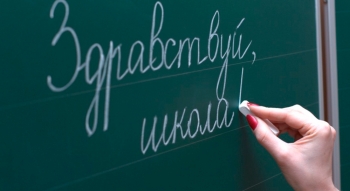 Здравствуй,
школа!